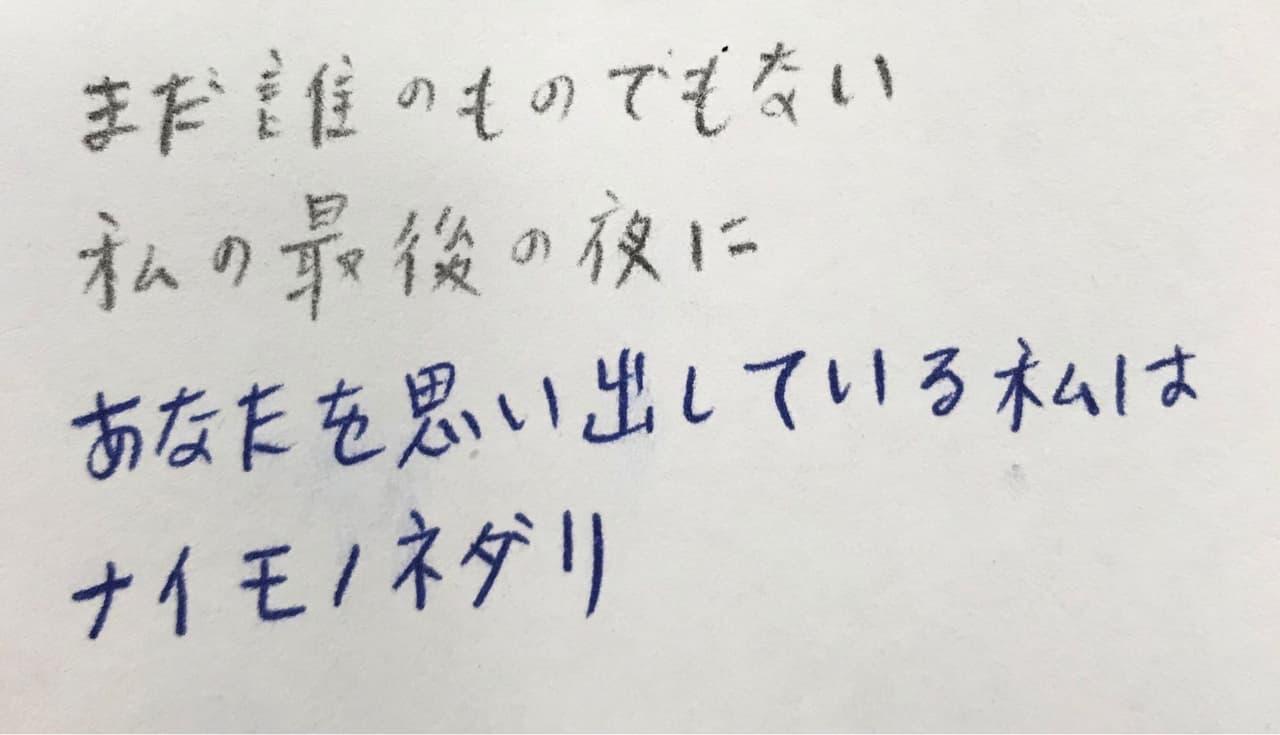 まだ誰のものでもない
私の最後の夜に
あなたを思い出している私は
ナイモノネダリ